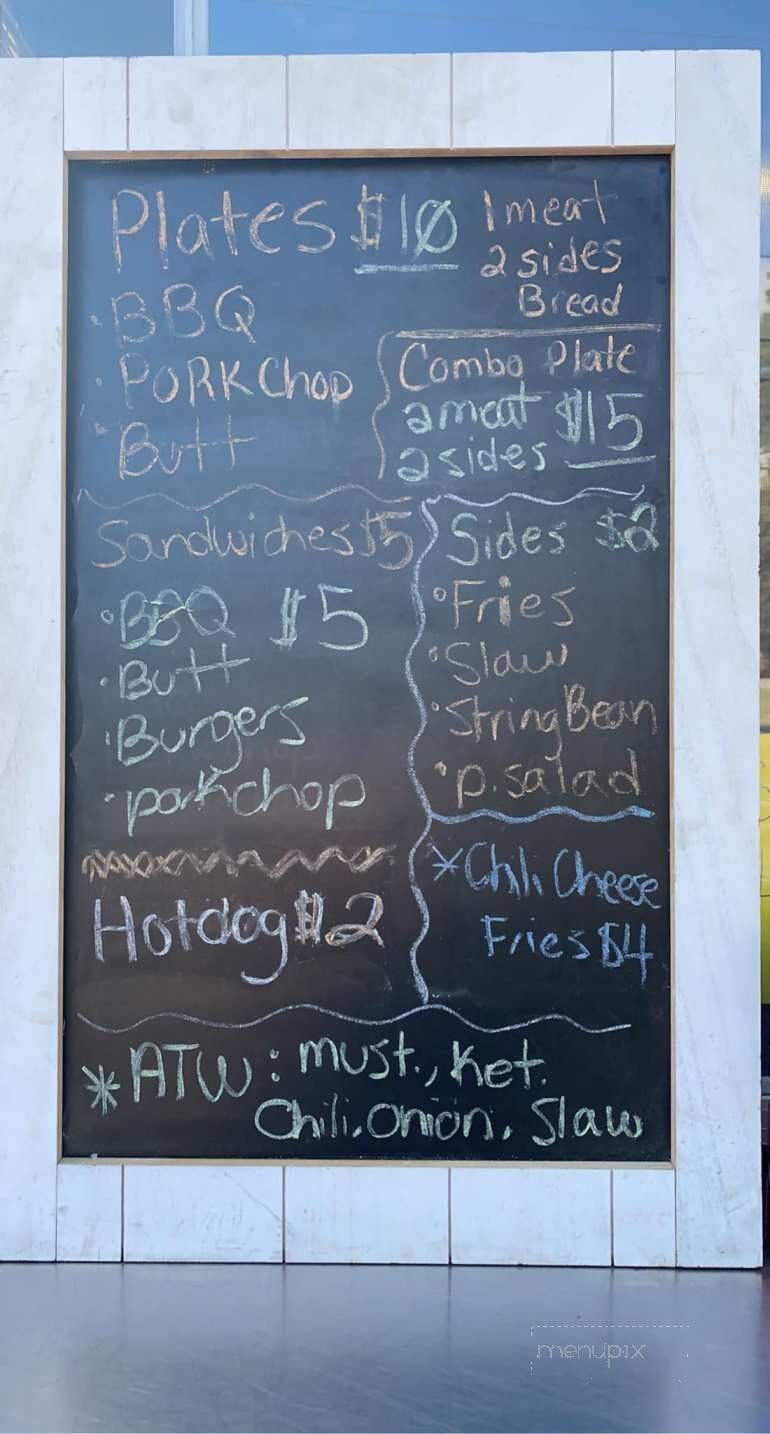 Plates $10
1 meat
2 sides
Bread
• BBQ
• PORK Chop
• Butt
Combo Plate
2 meat $15
2 sides
Sandwiches $5
• BBQ $5
• Butt
• Burgers
• porkchop
Hotdog $2
Sides $2
• Fries
• Slaw
• String Bean
• p. salad
* Chili Cheese
Fries $4
* ATW: must., Ket.
Chili. Onion. Slaw
menupix